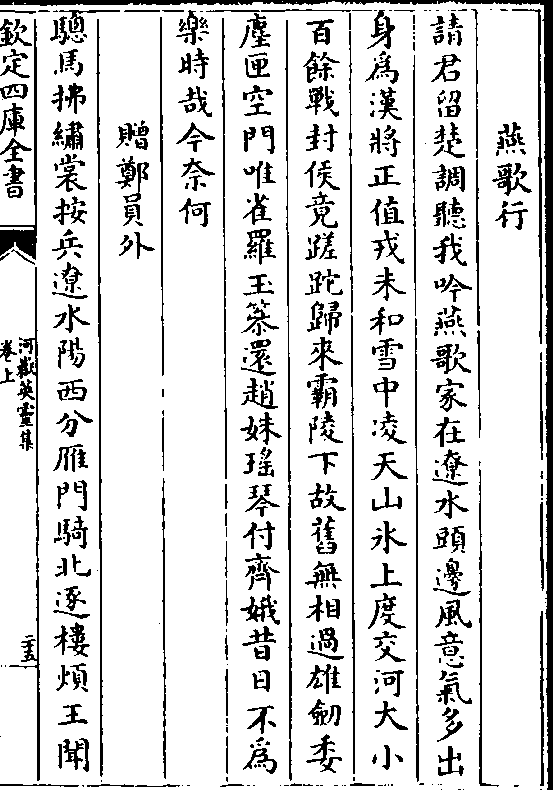 燕歌行
請君留楚調聽我吟燕歌家在遼水頭邊風意氣多出
身為漢將正值戎未和雪中凌天山氷上度交河大小
百餘戰封侯竟蹉跎歸來霸陵下故舊無相過雄劒委
塵匣空門唯雀羅玉簪還趙姝瑤琴付齊娥昔日不為
樂時哉今奈何
贈鄭員外
驄馬拂繡裳按兵遼水陽西分雁門騎北逐樓煩王聞
欽定四庫全書
河嶽英靈集
卷上
二十五